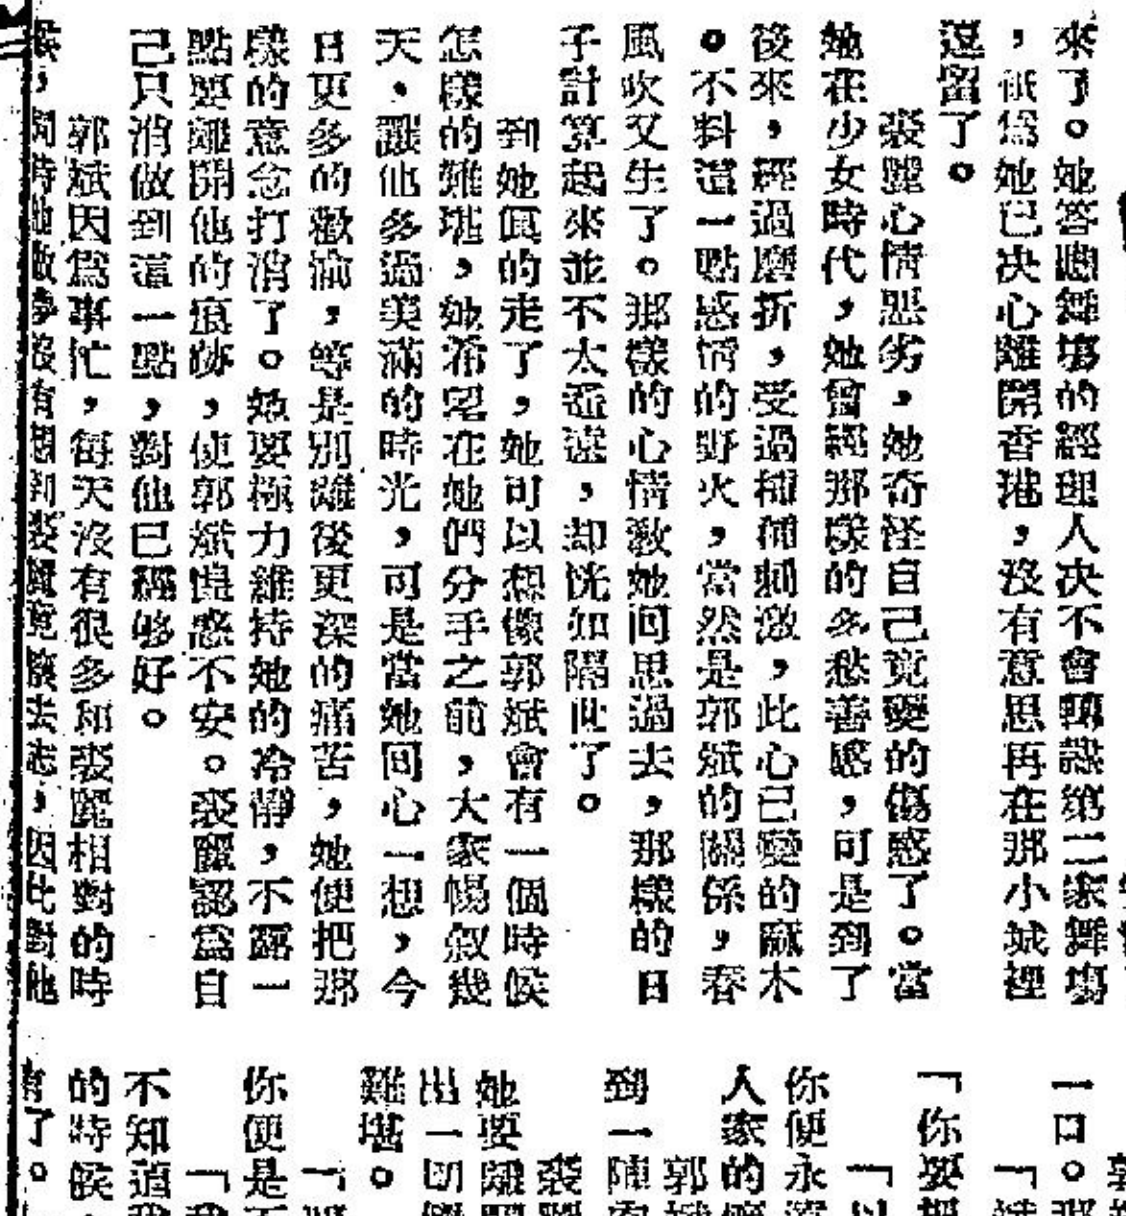 來了。她答應舞場的經理人决不會轉讓第二家舞場
，祇爲她已决心離開香港，沒有意思再在那小城裡
逗留了。
裘麗心情惡劣，她奇怪自己竟變的傷感了。當
她在少女時代，她曾經那樣的多愁善感，可是到了
後來，經過磨折，受過種種刺激，此心已變的麻木
。不料這一點感情的野火，當然是郭斌的關係，春
風吹又生了。那樣的心情敎她回思過去，那樣的日
子計算起來並不太遙遠，却恍如隔世了。
到她眞的走了，她可以想像郭斌會有一個時候
怎樣的難堪，她希望在她們分手之前，大家暢叙幾
天，讓他多過美滿的時光，可是當她回心一想，今
日更多的歡愉，等是別離後更深的痛苦，她便把那
樣的意念打消了。她要極力維持她的冷靜，不露一
點要離開他的痕跡，使郭斌惶惑不安。裘麗認爲自
己只消做到這一點，對他已經够好。
郭斌因爲事忙，每天沒有很多和裘麗相對的時
候，同時他做夢沒有想到裘麗竟懷去志，因此對他
一口。那
「你要把
你便永遠
人家的
郭斌
到一陣
裘麗
她要離開
出一切
難堪。
你便是不
「我
不知道我
的時候，
有了。